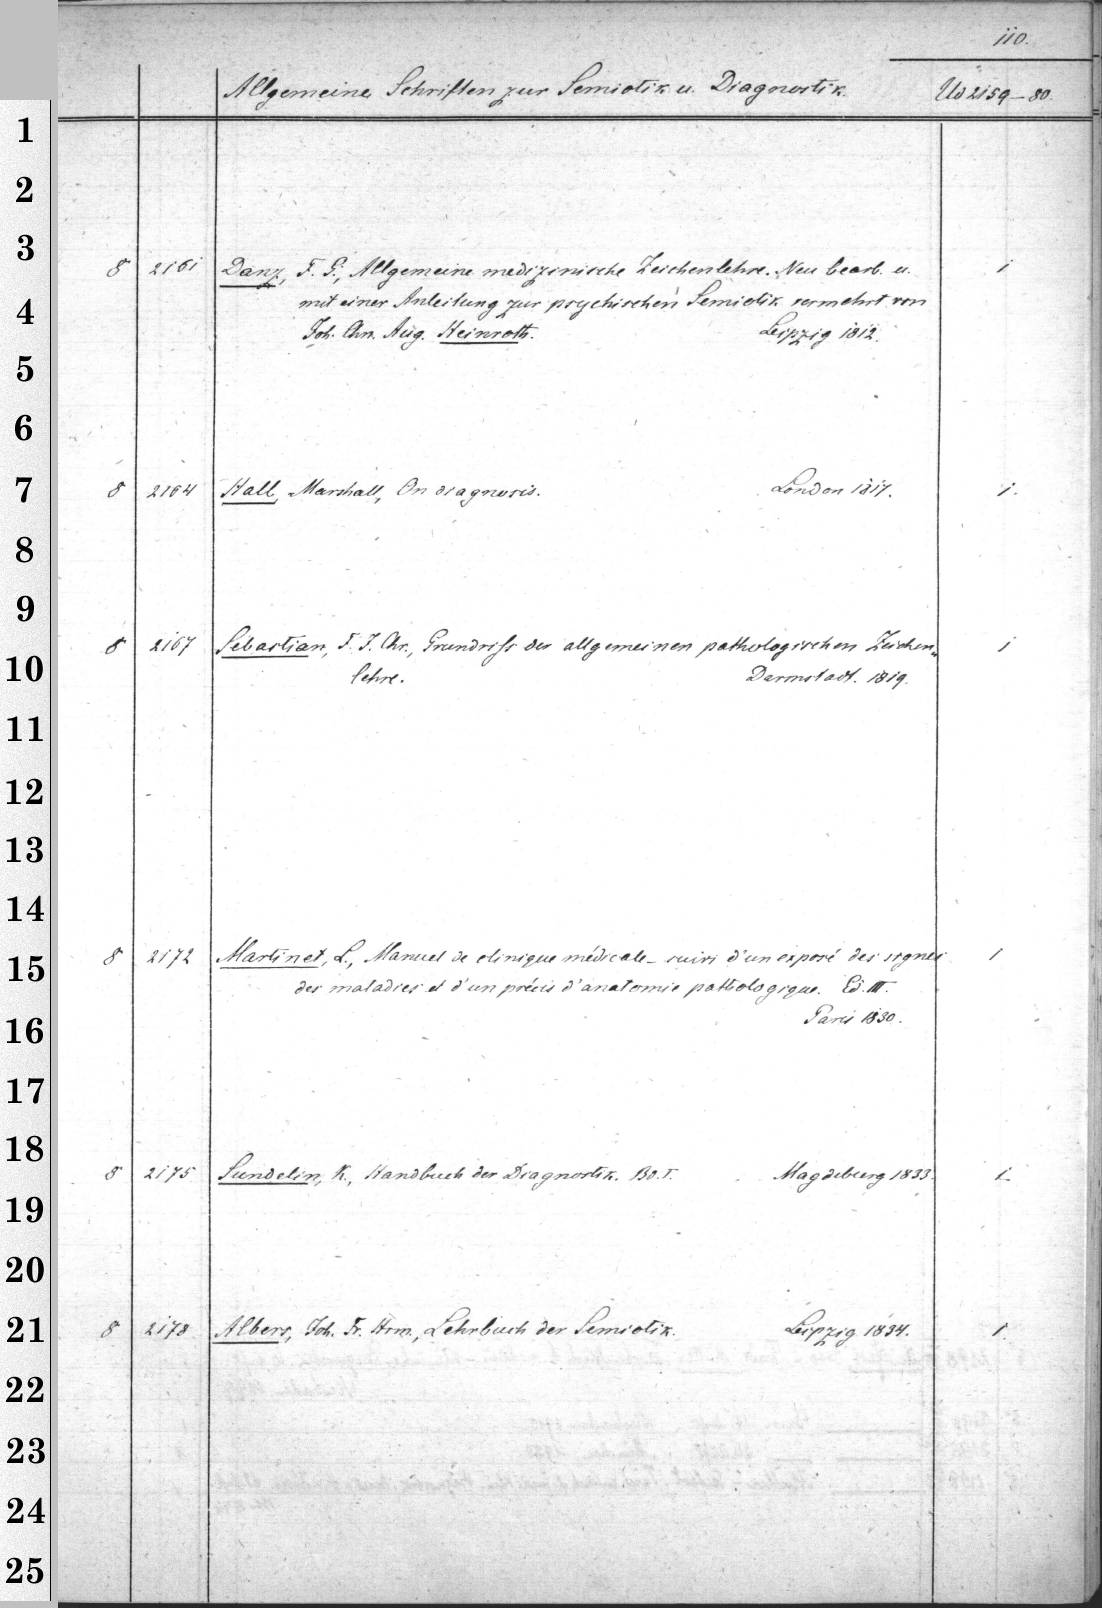 110.
Allgemeine Schriften zur Semiotik u. Diagnostik. Ud 2159-80.
8 2161 Danz, F. G., Allgemeine medizinische Zeichenlehre. Neu bearb. u. 1
mit einer Anleitung zur psychischen Semiotik vermehrt von
Joh. Chn. Aug. Heinroth. Leipzig 1812.
8 2164 Hall, Marshall, On diagnosis. London 1817. 1.
8 2167 Sebastian, F. J. Chr., Grundriss der allgemeinen pathologischen Zeichen„ 1
lehre. Darmstadt. 1819.
8 2172 Martinet, L., Manuel de clinique médicale - suivi d'un exposé des signes 1
des maladies et d'un précis d'anatomie pathologique. Ed. III.
Paris 1830.
8 2175 Sundelin, K., Handbuch der Diagnostik. Bd. I. Magdeburg 1833. 1
8 2178 Albers, Joh. Fr. Hrm., Lehrbuch der Semiotik. Leipzig 1834. 1
1
2
3
4
5
6
7
8
9
10
11
12
13
14
15
16
17
18
19
20
21
22
23
24
25